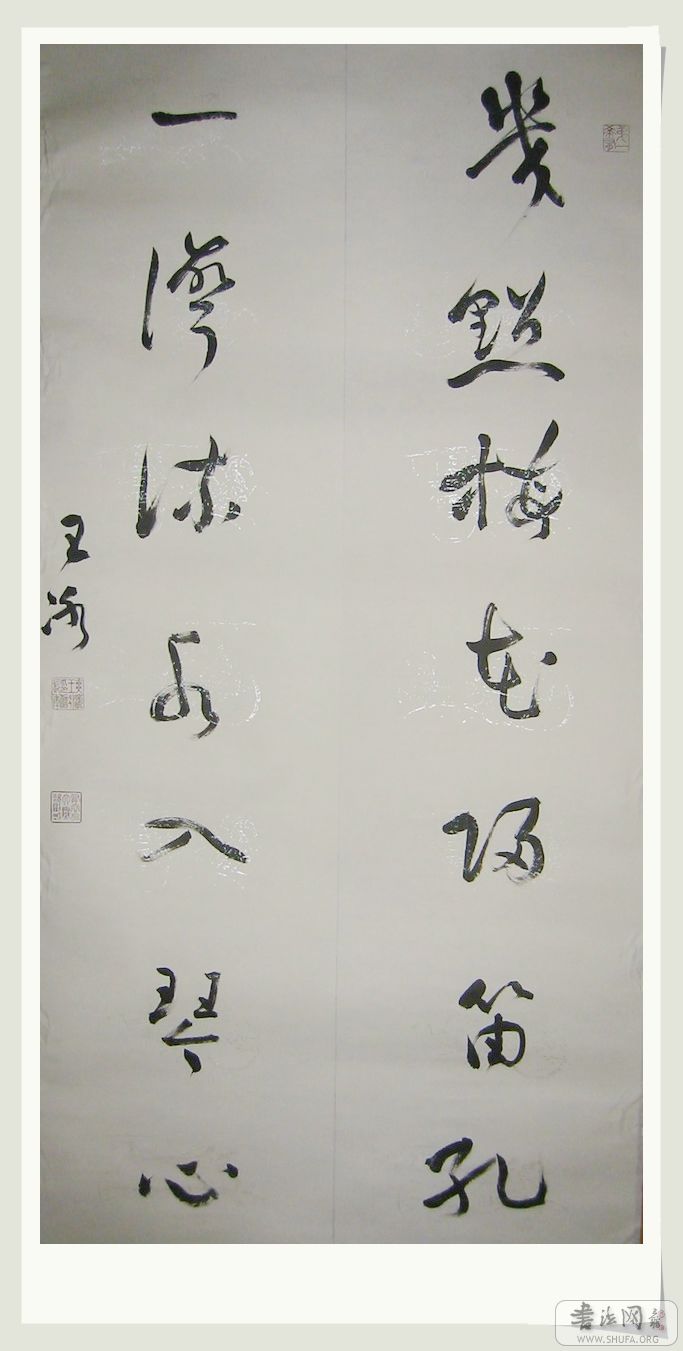 幾點梅花歸笛孔
一灣流水入琴心
王
書法网
WWW.SHUFA.ORG